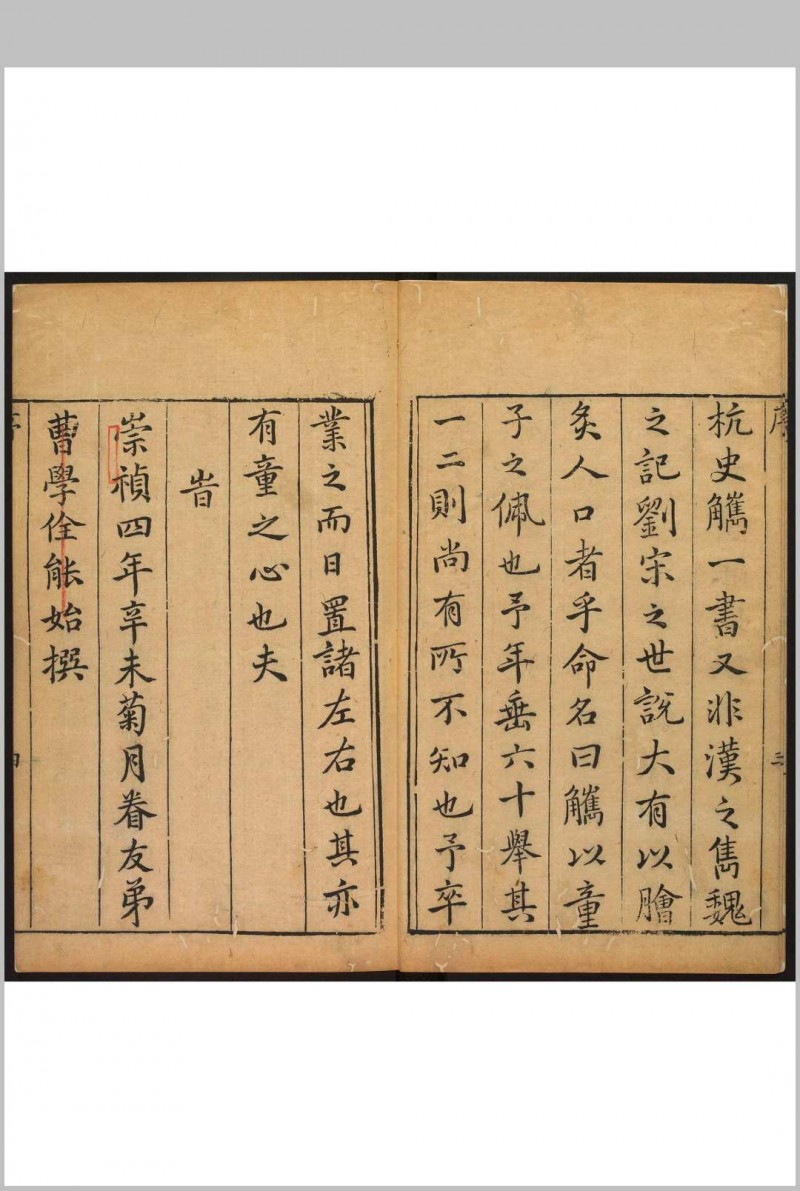 序
三
杭史觿一書又非漢之雋魏
之記劉宋之世說大有以膾
炙人口者乎命名曰觿以童
子之佩也予年垂六十舉其
一二則尚有所不知也予卒
業之而日置諸左右也其亦
有童之心也夫
旹
崇禎四年辛未菊月眷友弟
曹學佺能始撰